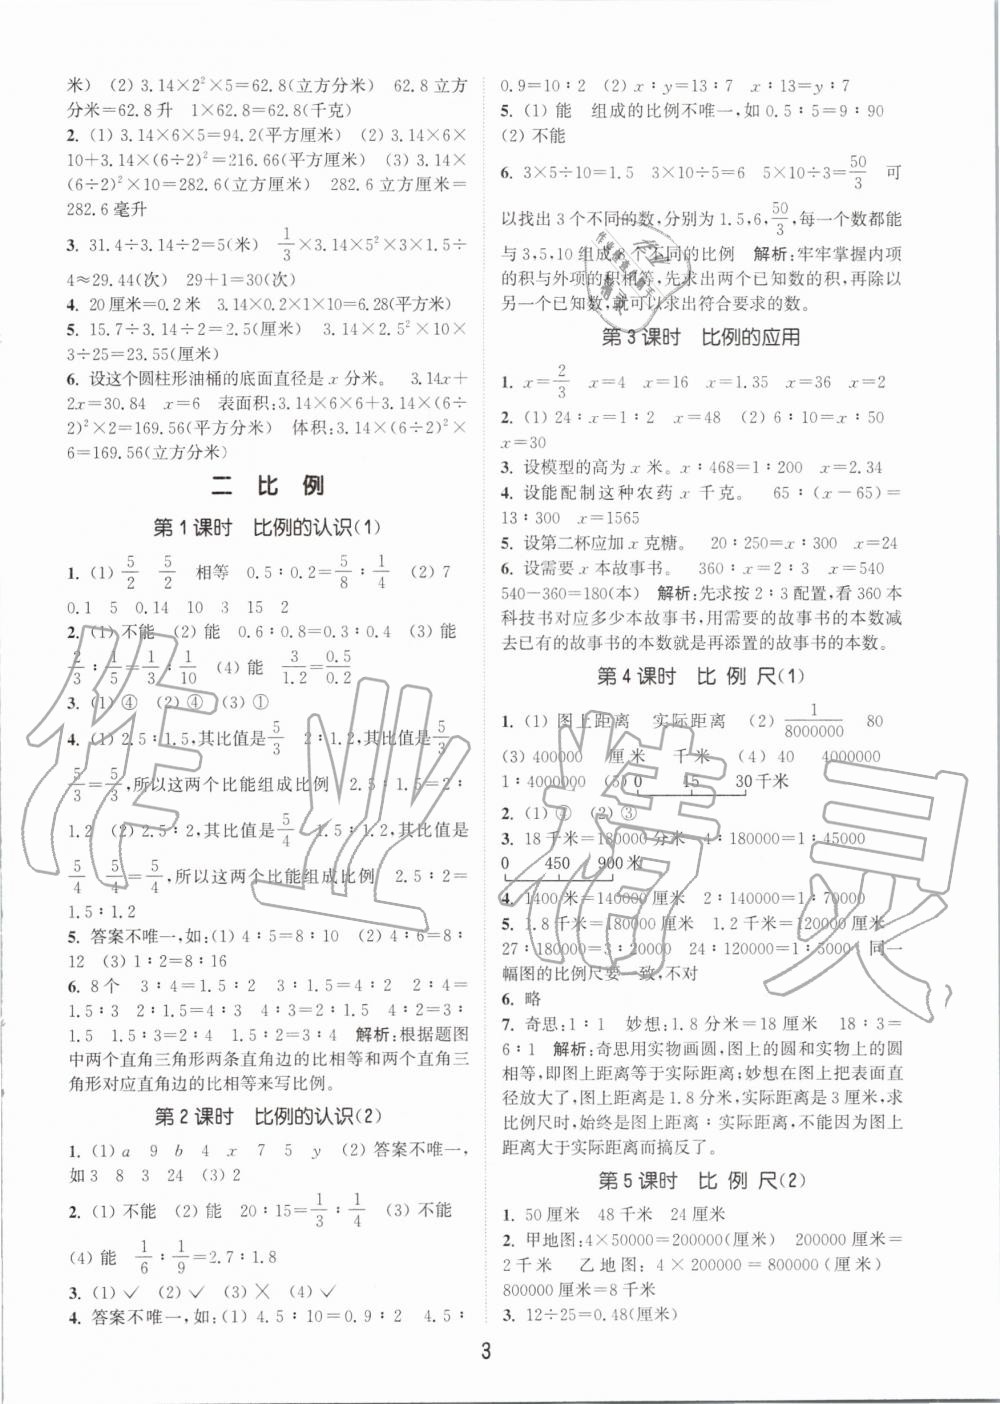 米) (2) 3.14×2²×5=62.8(立方分米) 62.8 立方
分米=62.8 升 1×62.8=62.8(千克)
2. (1) 3.14×6×5=94.2(平方厘米) (2) 3.14×6×
10+3.14×(6÷2)²=216.66(平方厘米) (3) 3.14×
(6÷2)²×10=282.6(立方厘米) 282.6 立方厘米=
282.6 毫升
3. 31.4÷3.14÷2=5(米) 1/3×3.14×5²×3×1.5÷
4≈29.44(次) 29+1=30(次)
4. 20 厘米=0.2 米 3.14×0.2×1×10=6.28(平方米)
5. 15.7÷3.14÷2=2.5(厘米) 3.14×2.5²×10×
3÷25=23.55(厘米)
6. 设这个圆柱形油桶的底面直径是 x 分米。 3.14x+
2x=30.84 x=6 表面积:3.14×6×6+3.14×(6÷
2)²×2=169.56(平方分米) 体积:3.14×(6÷2)²×
6=169.56(立方分米)
二 比 例
第 1 课时 比例的认识(1)
1. (1) 5/2 5/2 相等 0.5∶0.2=5/8∶1/4 (2) 7
0.1 5 0.14 10 3 15 2
2. (1) 不能 (2) 能 0.6∶0.8=0.3∶0.4 (3) 能
2/3∶1/5=1/3∶1/10 (4) 能 3/1.2=0.5/0.2
3. (1) ④ (2) ④ (3) ①
4. (1) 2.5∶1.5,其比值是5/3 2∶1.2,其比值是5/3
5/3=5/3,所以这两个比能组成比例 2.5∶1.5=2∶
1.2 (2) 2.5∶2,其比值是5/4 1.5∶1.2,其比值是
5/4 5/4=5/4,所以这两个比能组成比例 2.5∶2=
1.5∶1.2
5. 答案不唯一,如:(1) 4∶5=8∶10 (2) 4∶6=8∶
12 (3) 1∶2=8∶16
6. 8 个 3∶4=1.5∶2 3∶1.5=4∶2 2∶4=
1.5∶3 2∶1.5=4∶3 4∶3=2∶1.5 4∶2=3∶
1.5 1.5∶3=2∶4 1.5∶2=3∶4 解析:根据题图
中两个直角三角形两条直角边的比相等和两个直角三
角形对应直角边的比相等来写比例。
第 2 课时 比例的认识(2)
1. (1) a 9 b 4 x 7 5 y (2) 答案不唯一,
如 3 8 3 24 (3) 2
2. (1) 不能 (2) 能 20∶15=1/3∶1/4 (3) 不能
(4) 能 1/6∶1/9=2.7∶1.8
3. (1) ✓ (2) ✓ (3) ✗ (4) ✓
4. 答案不唯一,如:(1) 4.5∶10=0.9∶2 4.5∶
0.9=10∶2 (2) x∶y=13∶7 x∶13=y∶7
5. (1) 能 组成的比例不唯一,如 0.5∶5=9∶90
(2) 不能
6. 3×5÷10=1.5 3×10÷5=6 5×10÷3=50/3 可
以找出 3 个不同的数,分别为 1.5,6,50/3,每一个数都能
与 3,5,10 组成 个不同的比例 解析:牢牢掌握内项
的积与外项的积相等,先求出两个已知数的积,再除以
另一个已知数,就可以求出符合要求的数。
第 3 课时 比例的应用
1. x=2/3 x=4 x=16 x=1.35 x=36 x=2
2. (1) 24∶x=1∶2 x=48 (2) 6∶10=x∶50
x=30
3. 设模型的高为 x 米。x∶468=1∶200 x=2.34
4. 设能配制这种农药 x 千克。 65∶(x-65)=
13∶300 x=1565
5. 设第二杯应加 x 克糖。 20∶250=x∶300 x=24
6. 设需要 x 本故事书。 360∶x=2∶3 x=540
540-360=180(本) 解析:先求按 2∶3 配置,看 360 本
科技书对应多少本故事书,用需要的故事书的本数减
去已有的故事书的本数就是再添置的故事书的本数。
第 4 课时 比 例 尺(1)
1. (1) 图上距离 实际距离 (2) 1/8000000 80
(3) 400000 厘米 千米 (4) 40 4000000
1∶4000000 (5) 0 15 30 千米
2. (1) ④ (2) ③
3. 18 千米=180000 分米 4∶180000=1∶45000
0 450 900 米
4. 1400 米=140000 厘米 140000÷7=20000
5. 1.8 千米=180000 厘米 1.2 千米=120000 厘米
27∶180000=3∶20000 24∶120000=1∶5000 同一
幅图的比例尺要一致,不对
6. 略
7. 奇思:1∶1 妙想:1.8 分米=18 厘米 18∶3=
6∶1 解析:奇思用实物画圆,图上的圆和实物的圆
相等,即图上距离等于实际距离;妙想在图上把实际直
径放大了,图上的距离是 1.8 分米,实际距离是 3 厘米,求
比例尺时,始终是图上距离∶实际距离,不能因为图上
距离大于实际距离而搞反了。
第 5 课时 比 例 尺(2)
1. 50 厘米 48 千米 24 厘米
2. 甲地图:4×50000=200000(厘米) 200000 厘米=
2 千米 乙地图:4×200000=800000(厘米)
800000 厘米=8 千米
3. 12÷25=0.48(厘米)
3
作业精灵